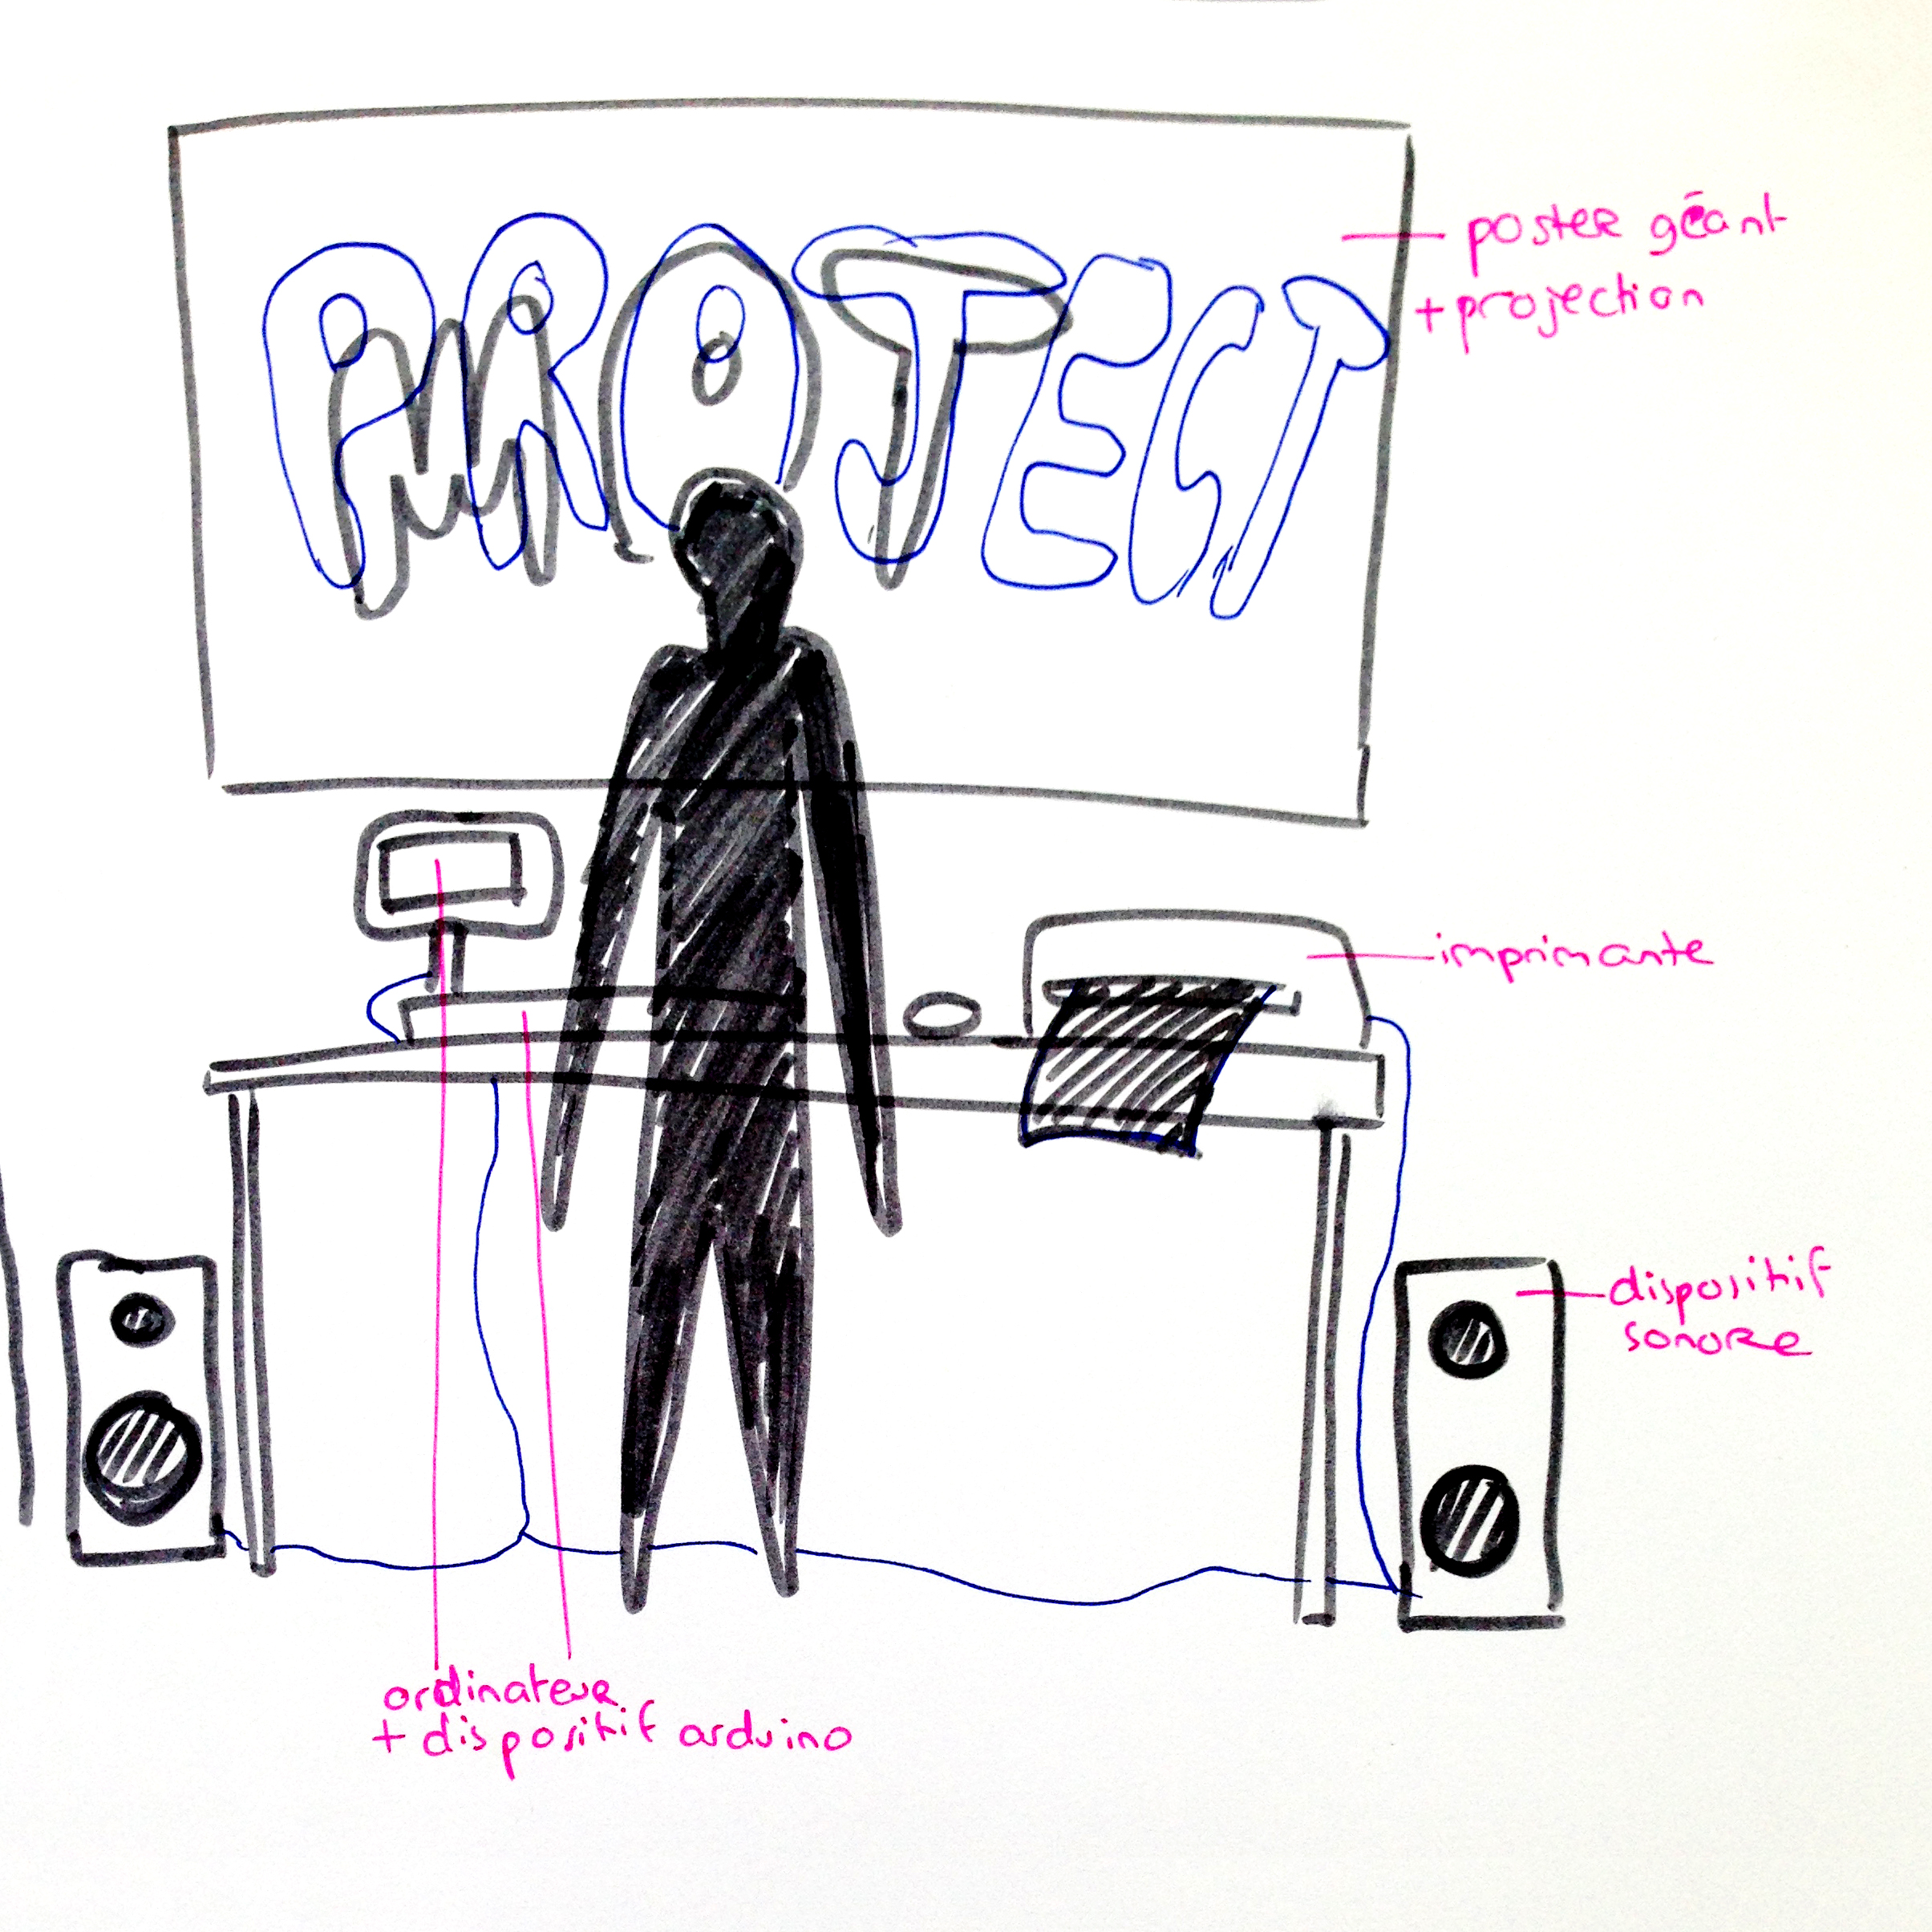 PROJECT
MOT
poster géant
+ projection
imprimante
dispositif
sonore
ordinateur
+ dispositif arduino